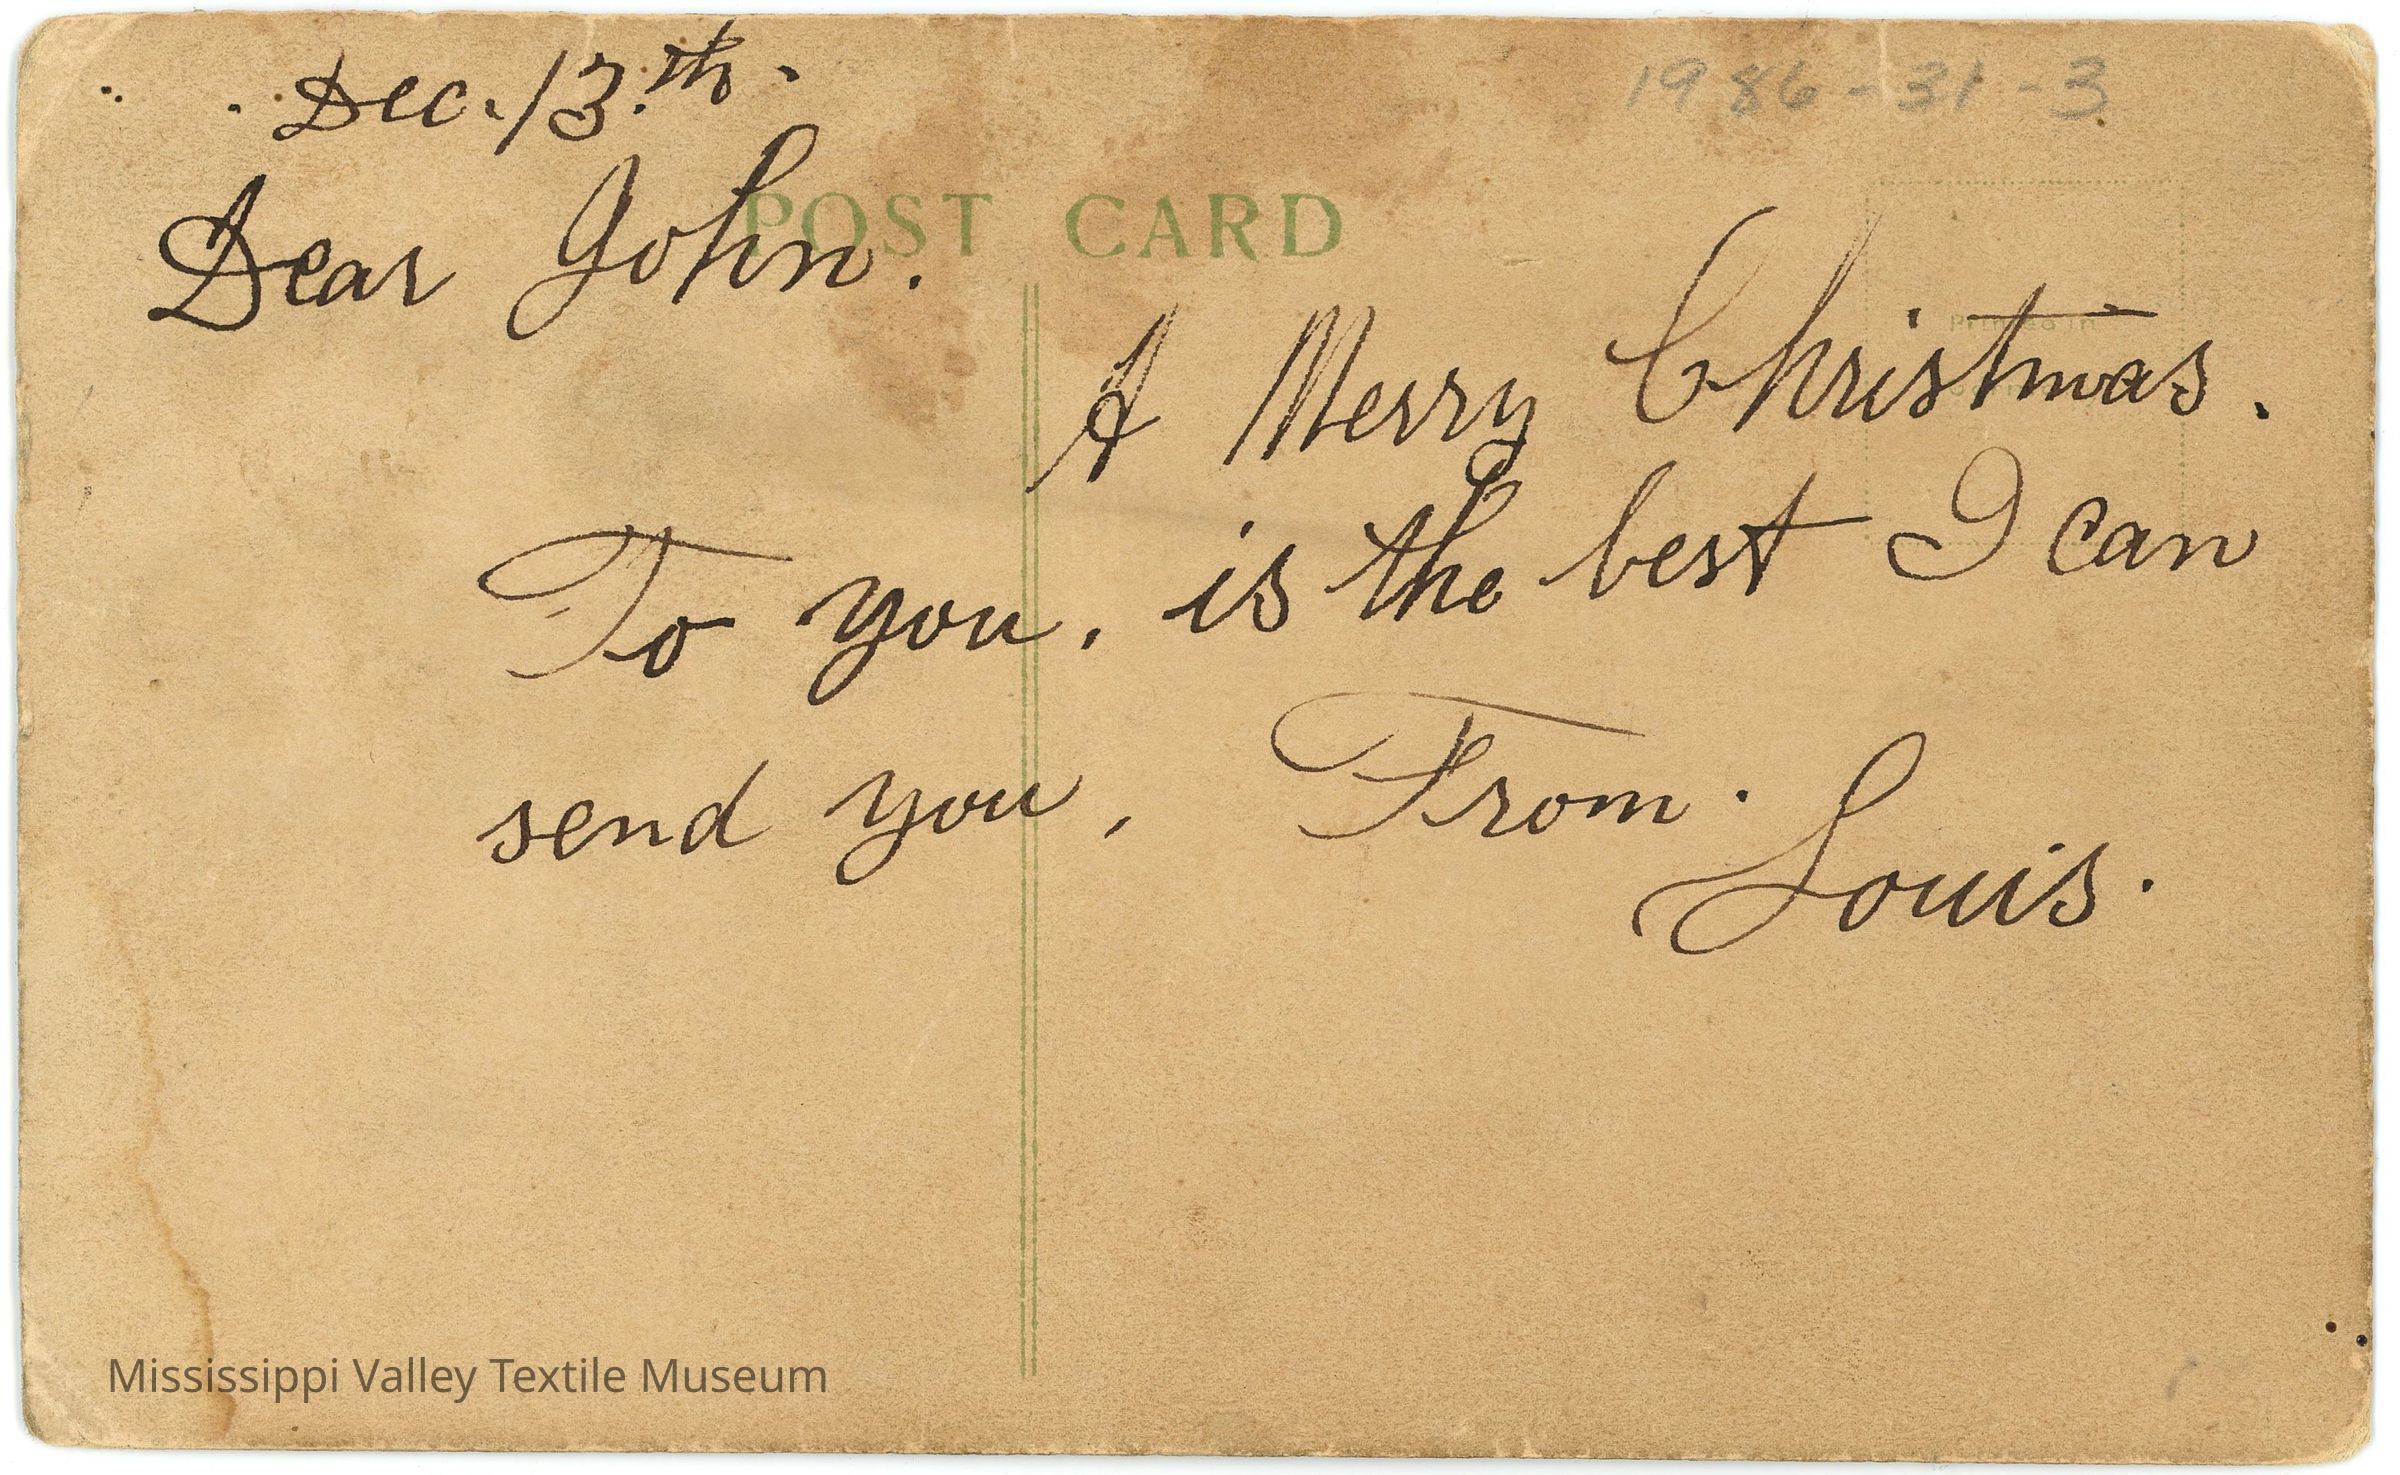 Dec. 13.th.
1986-31-3
POST CARD
Dear John.
Printed in
A Merry Christmas.
To you, is the best I can
send you, From.
Louis.
Mississippi Valley Textile Museum